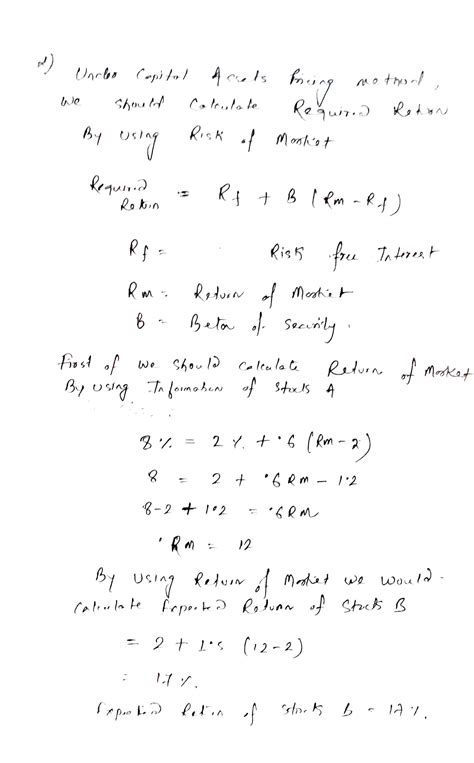 2) Under Capital Assets Pricing method,
we should Calculate Required Return
By Using Risk of Market
Required Return = Rf + B (Rm - Rf)
Rf = Risk free Interest
Rm = Return of Market
B = Beta of security.
First of we should calculate Return of Market
By using Information of Stocks A
8 % = 2 % + .6 (Rm - 2)
8 = 2 + .6 Rm - 1.2
8-2 + 1.2 = .6 RM
Rm = 12
By Using Return of Market we would
Calculate Expected Return of Stock B
= 2 + 1.5 (12-2)
= 17 %.
Expected Return of Stock B = 17 %.